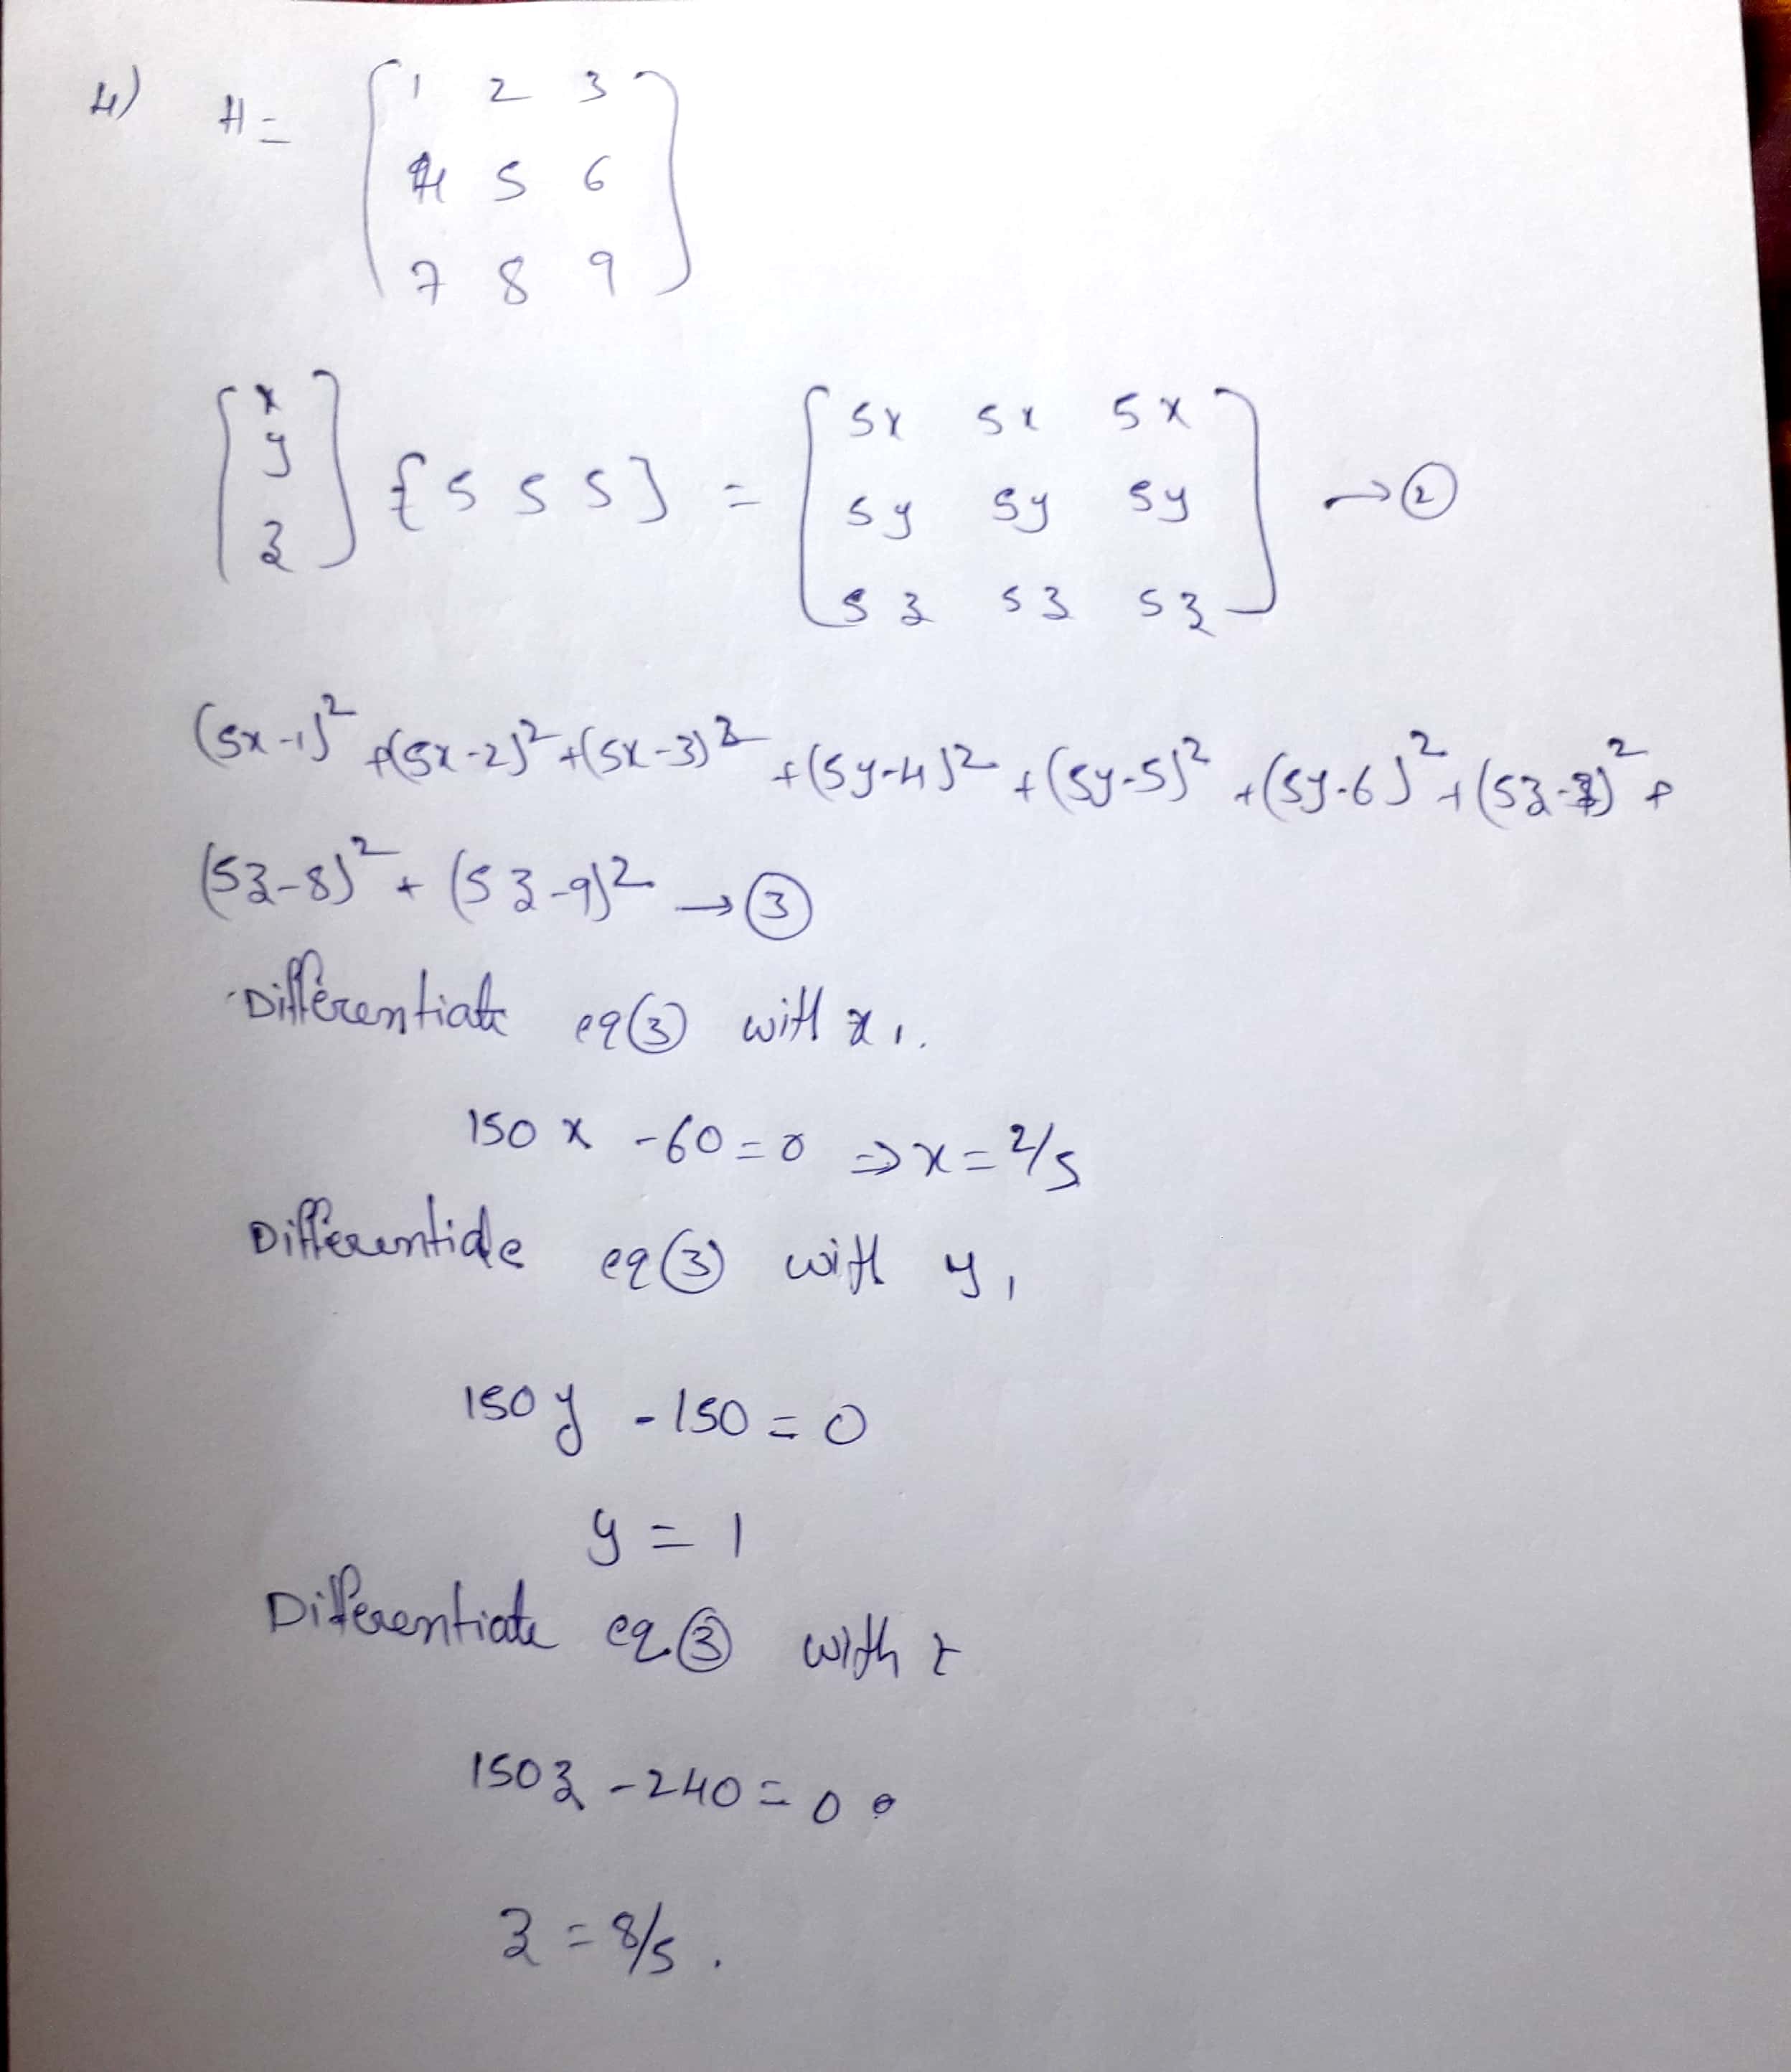 4) A = [ 1 2 3
4 5 6
7 8 9 ]
[ x
y
z ] { 5 5 5 } = [ 5x 5x 5x
5y 5y 5y
5z 5z 5z ] → ②
(5x-1)² + (5x-2)² + (5x-3)² + (5y-4)² + (5y-5)² + (5y-6)² + (5z-7)² +
(5z-8)² + (5z-9)² → ③
Differentiate eq ③ with x,
150x - 60 = 0 ⇒ x = 2/5
Differentiate eq ③ with y,
150y - 150 = 0
y = 1
Differentiate eq ③ with z
150z - 240 = 0
z = 8/5 .